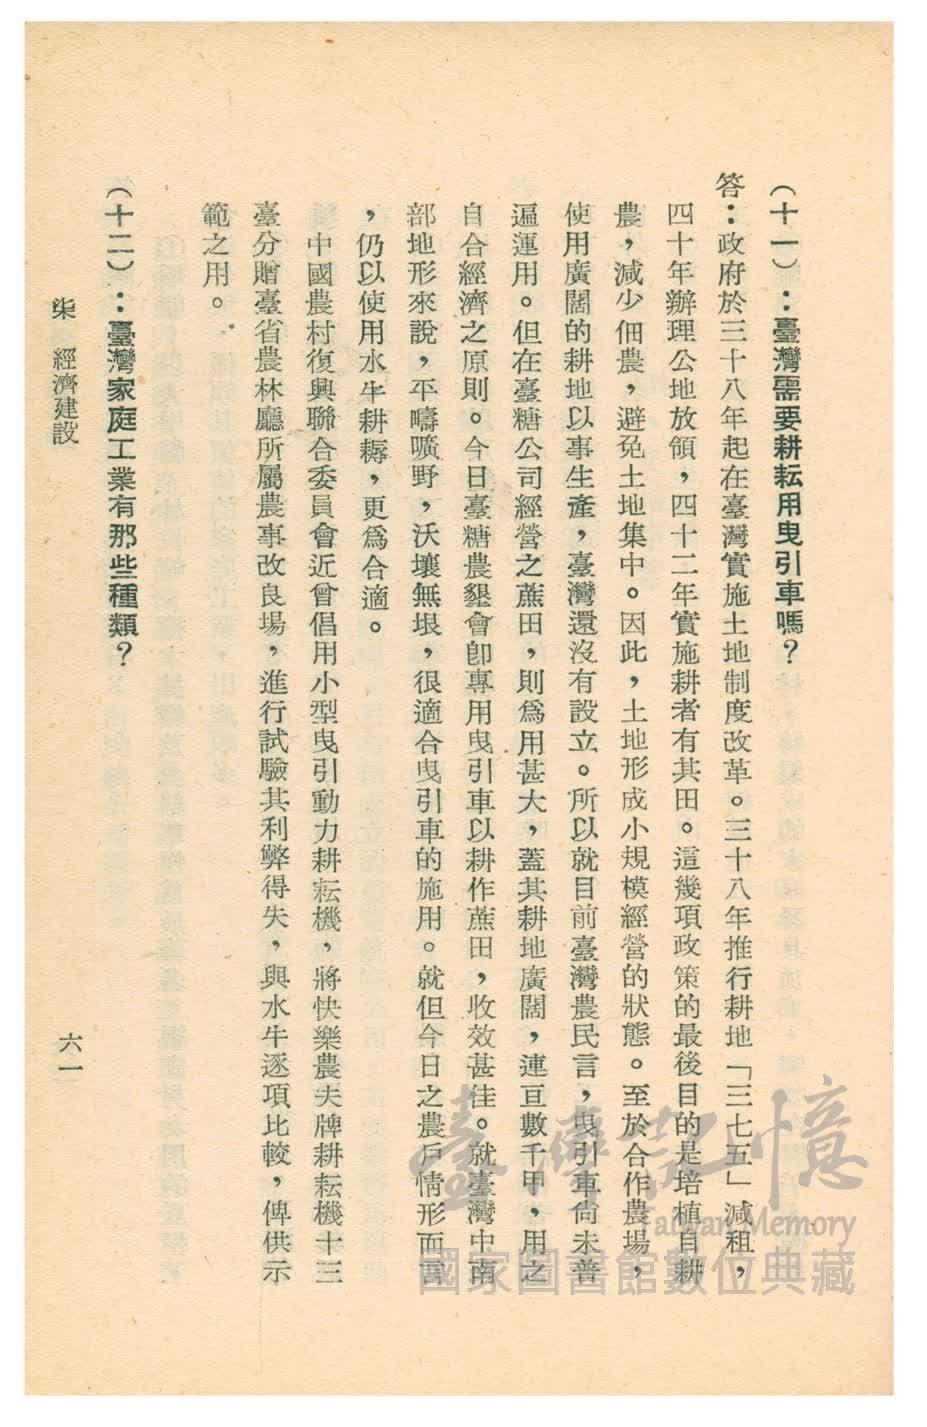 （十一）：臺灣需要耕耘用曳引車嗎？
答：政府於三十八年起在臺灣實施土地制度改革。三十八年推行耕地「三七五」減租，
四十年辦理公地放領，四十二年實施耕者有其田。這幾項政策的最後目的是培植自耕
農，減少佃農，避免土地集中。因此，土地形成小規模經營的狀態。至於合作農場，
使用廣闊的耕地以事生產，臺灣還沒有設立。所以就目前臺灣農民言，曳引車尙未普
遍運用。但在臺糖公司經營之蔗田，則爲用甚大，蓋其耕地廣闊，連亘數千甲，用之
自合經濟之原則。今日臺糖農墾會卽專用曳引車以耕作蔗田，收效甚佳。就臺灣中南
部地形來說，平疇曠野，沃壤無垠，很適合曳引車的施用。就但今日之農戶情形而言
，仍以使用水牛耕耨，更爲合適。
中國農村復興聯合委員會近曾倡用小型曳引動力耕耘機，將快樂農夫牌耕耘機十三
臺分贈臺省農林廳所屬農事改良場，進行試驗其利弊得失，與水牛逐項比較，俾供示
範之用。
（十二）：臺灣家庭工業有那些種類？
柒　經濟建設
六一
臺灣記憶
Taiwan Memory
國家圖書館數位典藏